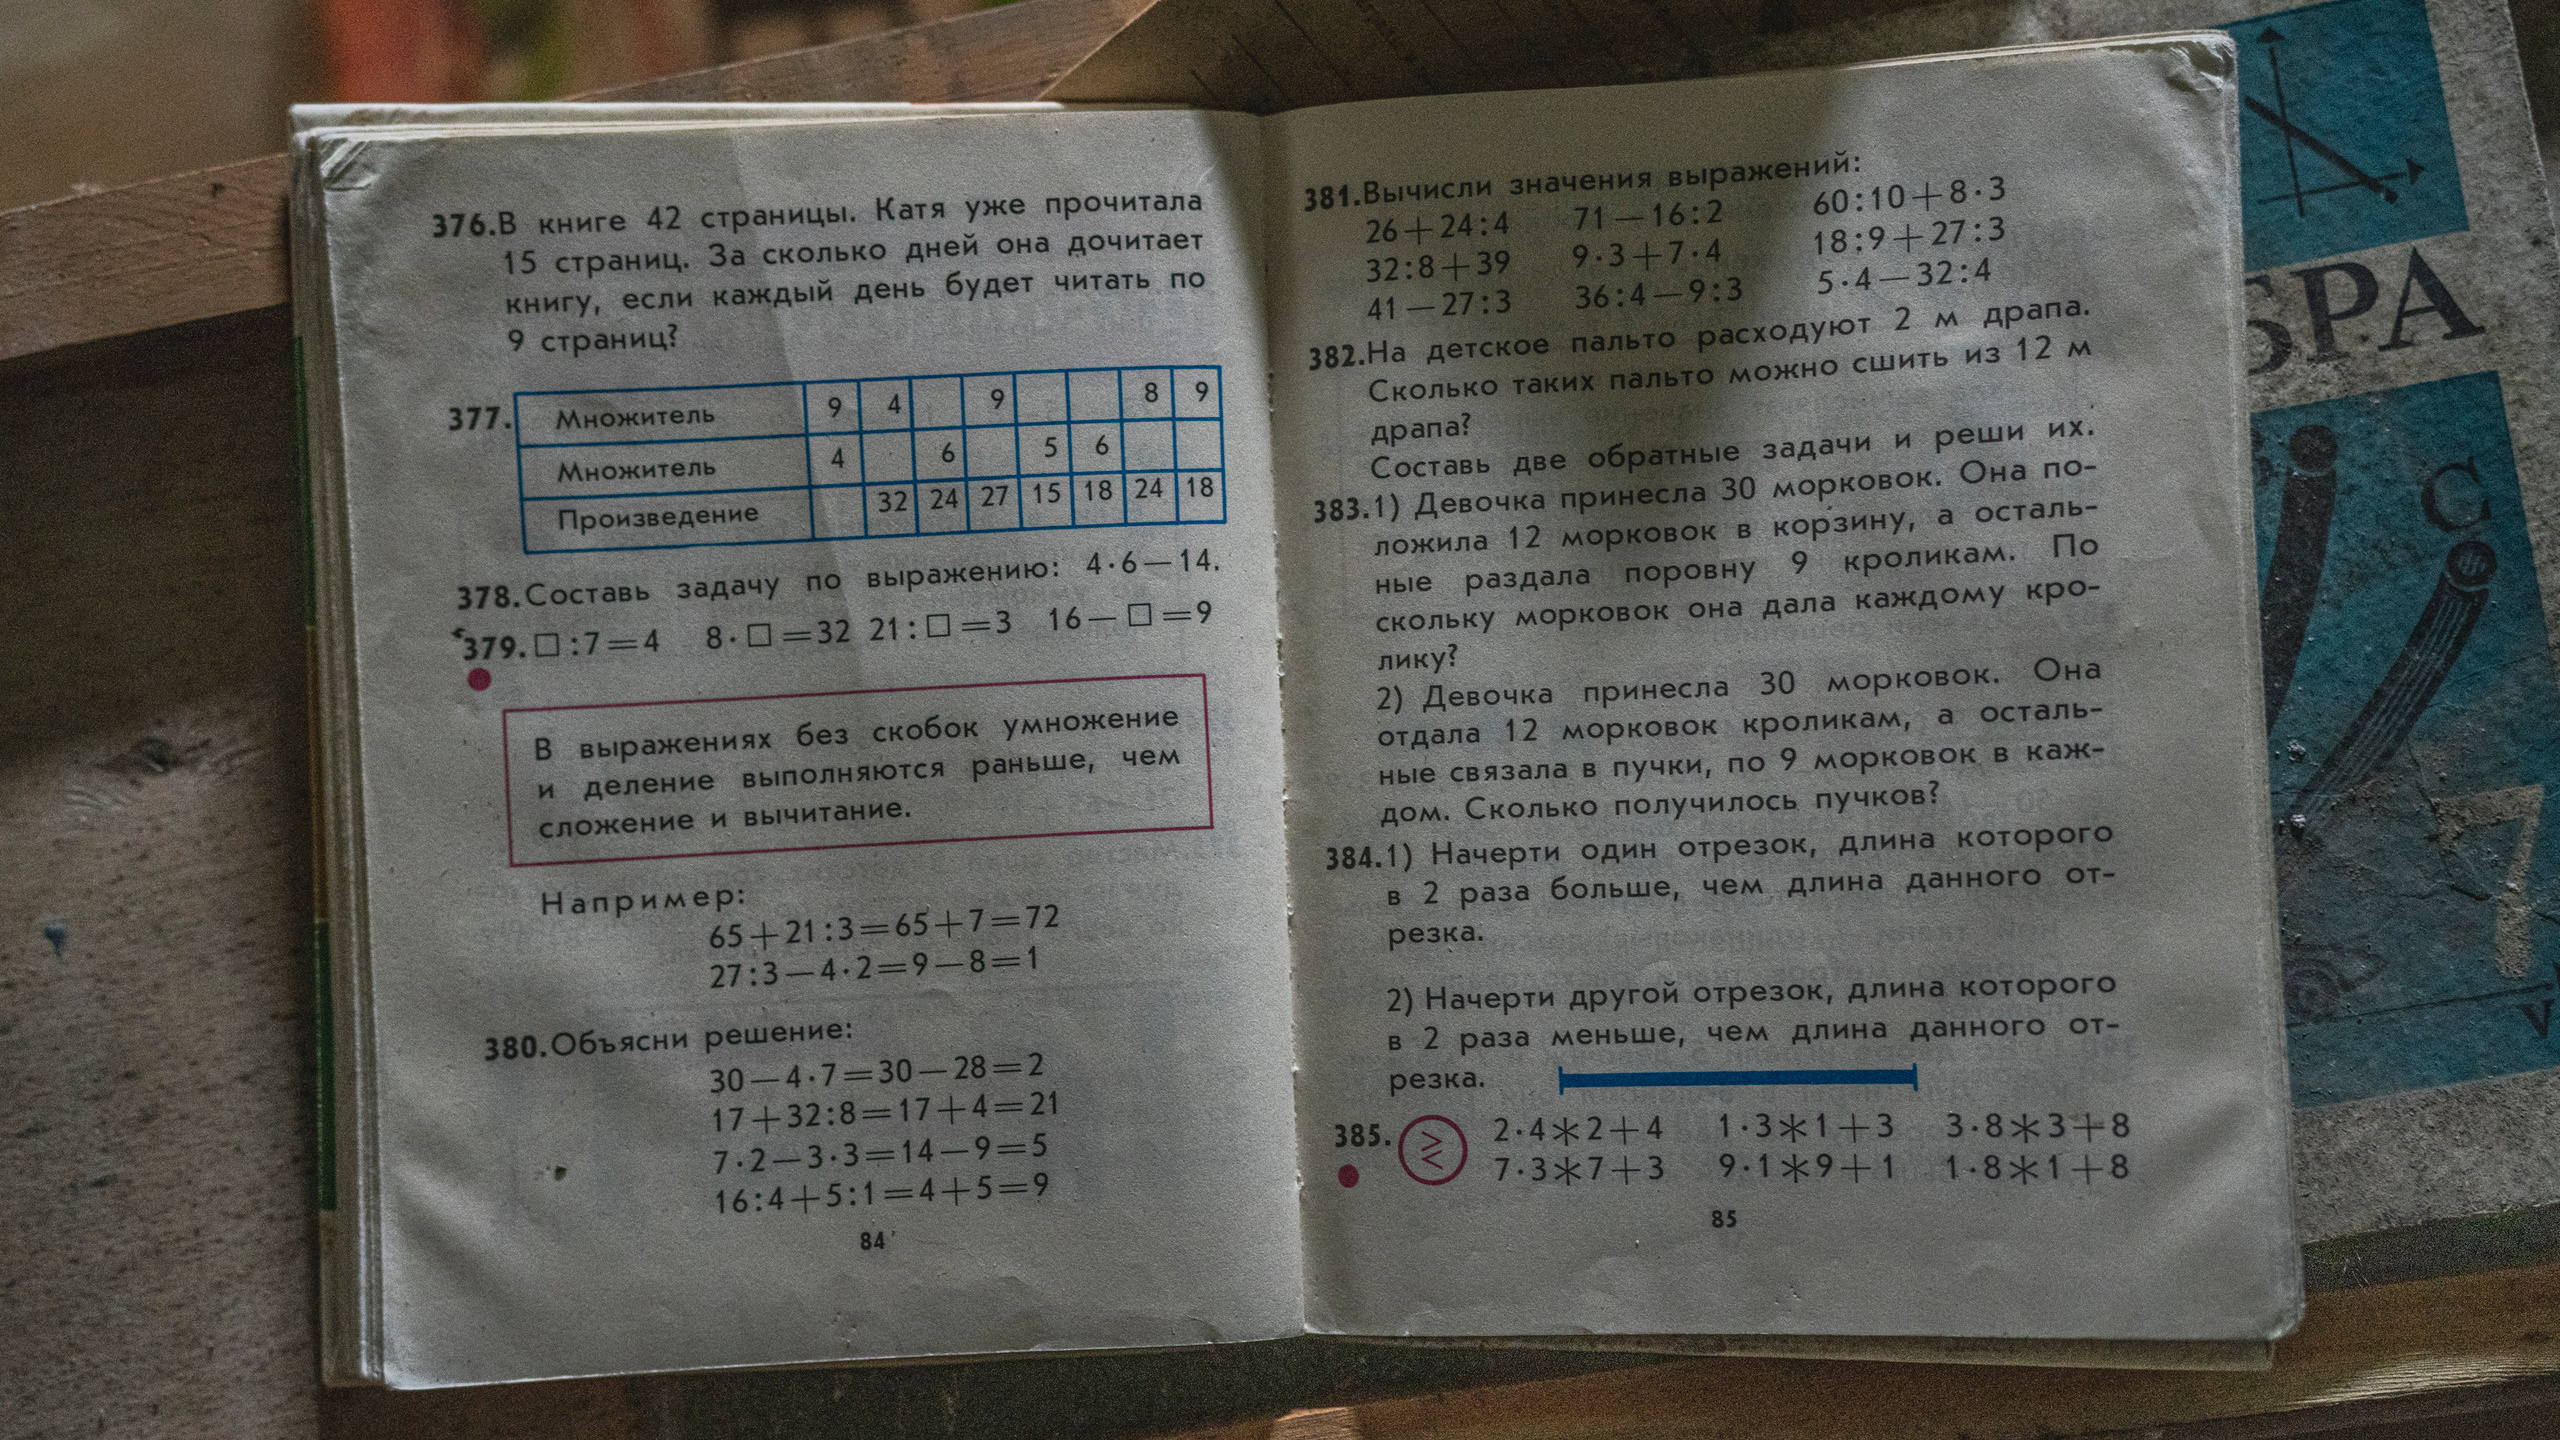 376. В книге 42 страницы. Катя уже прочитала
15 страниц. За сколько дней она дочитает
книгу, если каждый день будет читать по
9 страниц?
377.
Множитель 9 4 9 8 9
Множитель 4 6 5 6
Произведение 32 24 27 15 18 24 18
378. Составь задачу по выражению: 4·6—14.
379. □:7=4 8·□=32 21:□=3 16—□=9
В выражениях без скобок умножение
и деление выполняются раньше, чем
сложение и вычитание.
Например:
65+21:3=65+7=72
27:3—4·2=9—8=1
380. Объясни решение:
30—4·7=30—28=2
17+32:8=17+4=21
7·2—3·3=14—9=5
16:4+5:1=4+5=9
84
381. Вычисли значения выражений:
26+24:4 71—16:2 60:10+8·3
32:8+39 9·3+7·4 18:9+27:3
41—27:3 36:4—9:3 5·4—32:4
382. На детское пальто расходуют 2 м драпа.
Сколько таких пальто можно сшить из 12 м
драпа?
Составь две обратные задачи и реши их.
383. 1) Девочка принесла 30 морковок. Она по-
ложила 12 морковок в корзину, а осталь-
ные раздала поровну 9 кроликам. По
скольку морковок она дала каждому кро-
лику?
2) Девочка принесла 30 морковок. Она
отдала 12 морковок кроликам, а осталь-
ные связала в пучки, по 9 морковок в каж-
дом. Сколько получилось пучков?
384. 1) Начерти один отрезок, длина которого
в 2 раза больше, чем длина данного от-
резка.
2) Начерти другой отрезок, длина которого
в 2 раза меньше, чем длина данного от-
резка.
385. > < 2·4*2+4 1·3*1+3 3·8*3+8
7·3*7+3 9·1*9+1 1·8*1+8
85
БРА
С
7